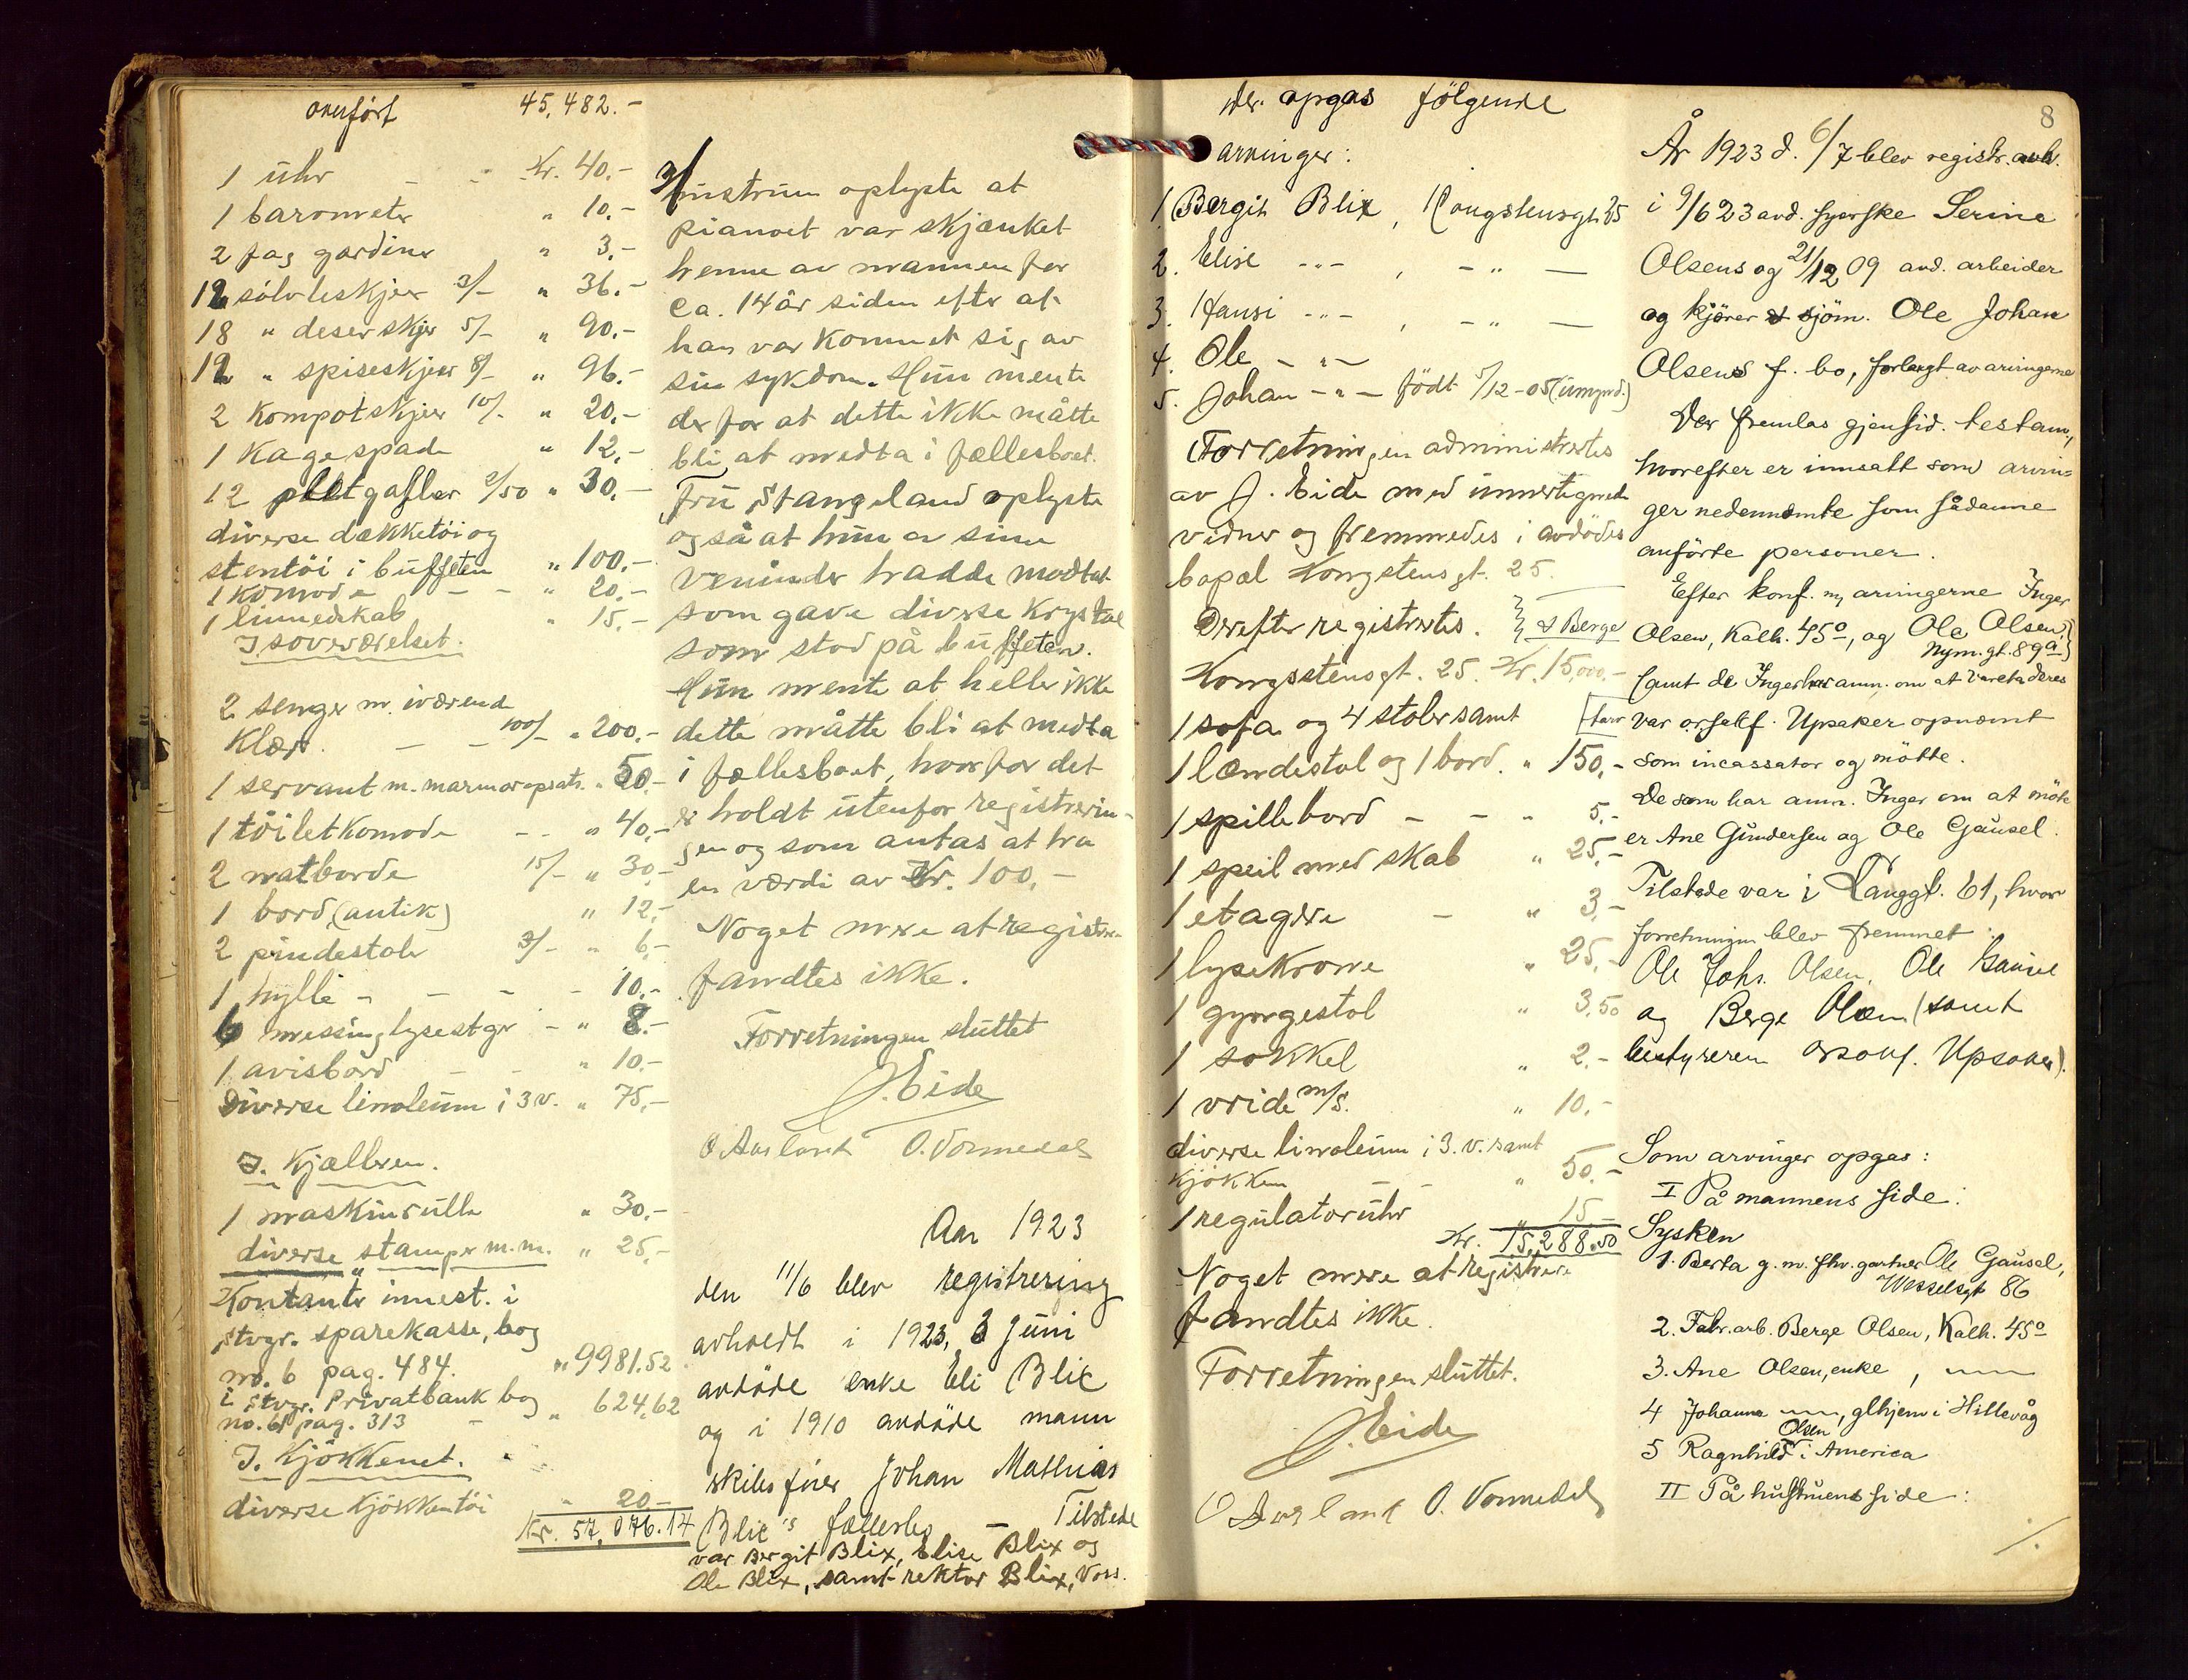 overført 45,482.-
1 uhr - - Kr. 40.-
1 barometer " 10.-
2 fag gardiner " 3.-
12 sølvteskjeer 3/- " 36.-
18 " desertskjer 5/- " 90.-
12 " spiseskjeer 8/- " 96.-
2 Kompotskjeer 10/- " 20.-
1 Kagespade " 12.-
12 pletgafler 2/50 " 30.-
diverse dækketøi og
stentöi i buffeten " 100.-
1 Komode - - " 20.-
1 linnedskab " 15.-
I soveværelset.
2 senger m. iværende
Klær. - - 100/- " 200.-
1 servant m. marmoropsats. " 50.-
1 töiletkomode - - " 40.-
2 natborde 15/- " 30.-
1 bord (antik) " 12.-
2 pindestoler 3/- " 6.-
1 hylle - - - - 10.-
6 messinglysestger - " 8.-
1 avisbord - - " 10.-
Diverse linoleum i 3 v. " 75.-
I. Kjælleren.
1 maskinrulle " 30.-
diverse stamper m.m. " 25.-
Kontanter innest. i
Stvgr. sparekasse, bog
no. 6 pag. 484. " 9981.52
i Stvgr. Privatbank bog
no. 61 pag. 313 - " 624,62
I. Kjökkenet.
diverse Kjökkentöi " 20.-
Kr. 57,076.14
Hustruen oplyste at
pianoet var skjænket
henne av mannen for
ca. 14 år siden efter at
han var kommet sig av
sin sykdom. Hun mente
derfor at dette ikke måtte
bli at medta i fællesboet.
Fru Stangeland oplyste
også at hun av sine
veninder hadde modtat
som gave diverse Krystal
som stod på buffeten.
Hun mente at heller ikke
dette måtte bli at medta
i fællesboet, hvorfor det
er holdt utenfor registrerin-
gen og som antas at ha
en værdi av Kr. 100.-
Noget mere at registrere
fandtes ikke.
Forretningen sluttet
J. Eide
O Aurland O. Vormedal
Aar 1923
den 11/6 blev registrering
avholdt i 1923, 3 Juni
avdöde enke Eli Blix
og i 1910 avdöde mann
skibsförer Johan Mathias
Blix's fællesbo - Tilstede
var Bergit Blix, Elise Blix og
Ole Blix, samt rektor Blix, Voss.
Der opgas følgende
arvinger:
1 Bergit Blix, Kongstensgt 25
2. Elise -"- , -"- —
3. Hansi -"- , -"- —
4. Ole -"-
5. Johan -"- født 5/12-05 (umynd.)
Forretningen administrertes
av J. Eide med undertegnede
vidner og fremmedes i avdødes
bopæl Kongstensgt. 25.
Derefter registrertes.
Kongsstensgt. 25. Kr. 15,000,-
1 sofa og 4 stoler samt
1 lændestol og 1 bord. " 150.-
1 spillebord - - " 5.-
1 speil med skab " 25.-
1 etagere - " 3.-
1 lysekrone " 25.-
1 gyngestol " 3,50
1 sokkel " 2.-
1 vride m/s. " 10.-
diverse linoleum i 3. v. samt
Kjökken - - " 50.-
1 regulatoruhr " 15.-
Kr. 15,288.50
Noget mere at registrere
fandtes ikke.
Forretningen sluttet.
J. Eide
O Aurland O. Vormedal
8
År 1923 d. 6/7 blev registr. avh.
i 9/6 23 avd. syerske Serine
Olsens og 21/12 09 avd. arbeider
og kjører sjöm. Ole Johan
Olsens f. bo, forlangt av arvingerne
Der fremlas gjensid. testam.,
hvorefter er innsatt som arvin-
ger nedennævnte som sådanne
anförte personer.
Efter konf. m, arvingerne Inger
& Berge Olsen, Kalh. 45º, og Ole Olsen,
Nym. gt. 89a
samt de Inger har anm. om at vareta deres
tarv var orsakf. Upsaker opnævnt
som incassator og mötte.
De som har anm. Inger om at möte
er Ane Gundersen og Ole Gausel.
Tilstede var i Langgt. 61, hvor
forretningen blev fremmet:
Ole Johs. Olsen, Ole Gausel
og Berge Olsen (samt
bestyreren orsakf. Upsaker).
Som arvinger opgas:
I På mannens side:
Sysken
1. Berta g. m. fhv. gartner Ole Gausel,
Wesselsgt 86
2. Fabr.arb. Berge Olsen, Kalh. 45º
3. Ane Olsen, enke, —"—
4 Johanna —"—, glhjem i Hillevåg
5 Ragnhild Olsen i America
II På hustruens side: